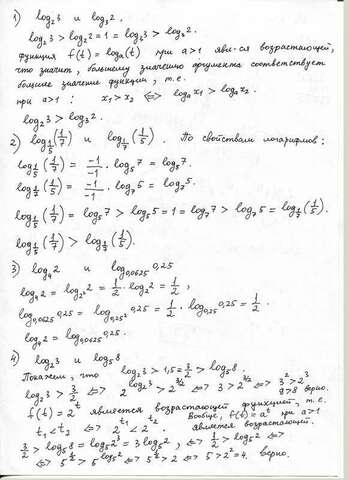 1) log₂3 и log₃2.
log₂3 > log₂2 = 1 = log₃3 > log₃2.
функция f(t) = logₐ(t) при a>1 явл-ся возрастающей,
что значит, большему значению аргумента соответствует
большее значение функции, т.е.
при a>1 : x₁ > x₂ ⟺ logₐx₁ > logₐx₂.
log₂3 > log₃2.
2) log_{1/5}(1/7) и log_{1/7}(1/5). По свойствам логарифмов:
log_{1/5}(1/7) = -1/-1 · log₅7 = log₅7.
log_{1/7}(1/5) = -1/-1 · log₇5 = log₇5.
log_{1/5}(1/7) = log₅7 > log₅5 = 1 = log₇7 > log₇5 = log_{1/7}(1/5).
log_{1/5}(1/7) > log_{1/7}(1/5).
3) log₄2 и log_{0,0625}0,25
log₄2 = log_{2²}2 = 1/2 · log₂2 = 1/2 ,
log_{0,0625}0,25 = log_{0,25²}0,25 = 1/2 · log_{0,25}0,25 = 1/2.
log₄2 = log_{0,0625}0,25.
4) log₂3 и log₅8
Покажем, что log₂3 > 1,5 = 3/2 > log₅8.
log₂3 > 3/2 ⟺ 2^{log₂3} > 2^{3/2} ⟺ 3 > 2^{3/2} ⟺ 3² > 2³
9>8 верно.
f(t) = 2^t является возрастающей функцией, т.е.
t₁ < t₂ ⟺ 2^{t₁} < 2^{t₂}. Вообще, f(t) = a^t при a>1
является возрастающей.
3/2 > log₅8 = log₅2³ = 3log₅2 , ⟺ 1/2 > log₅2 ⟺
⟺ 5^{1/2} > 5^{log₅2} ⟺ 5^{1/2} > 2 ⟺ 5 > 2² = 4. верно.